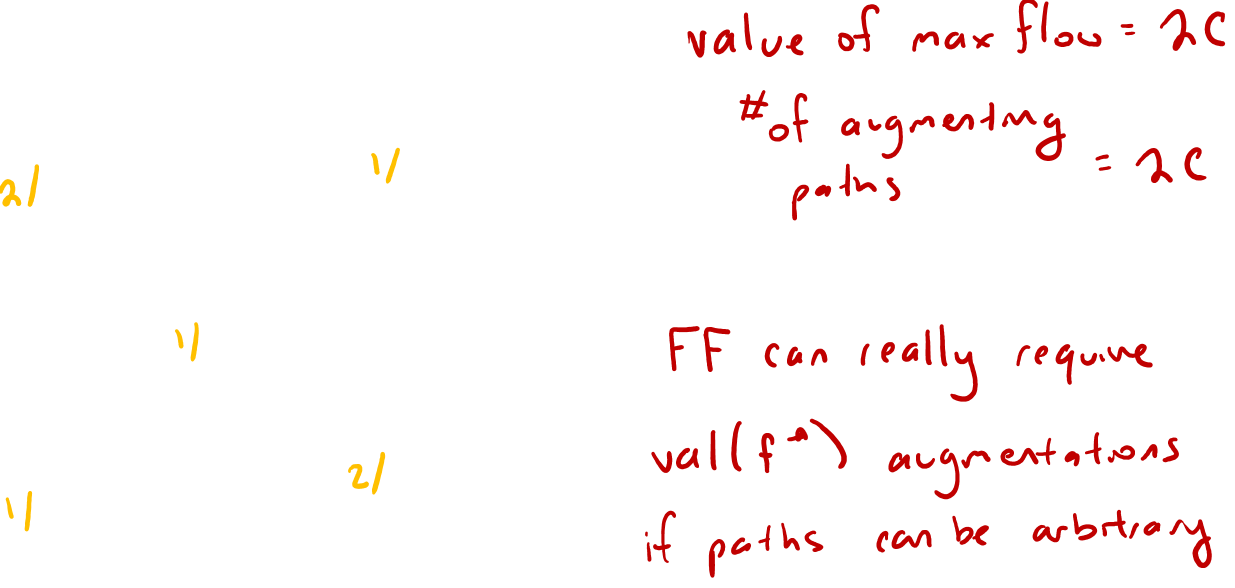 value of max flow = 2C
# of augmenting
paths = 2C
2/
1/
1/
FF can really require
val(f*) augmentations
2/
1/
if paths can be arbitrary